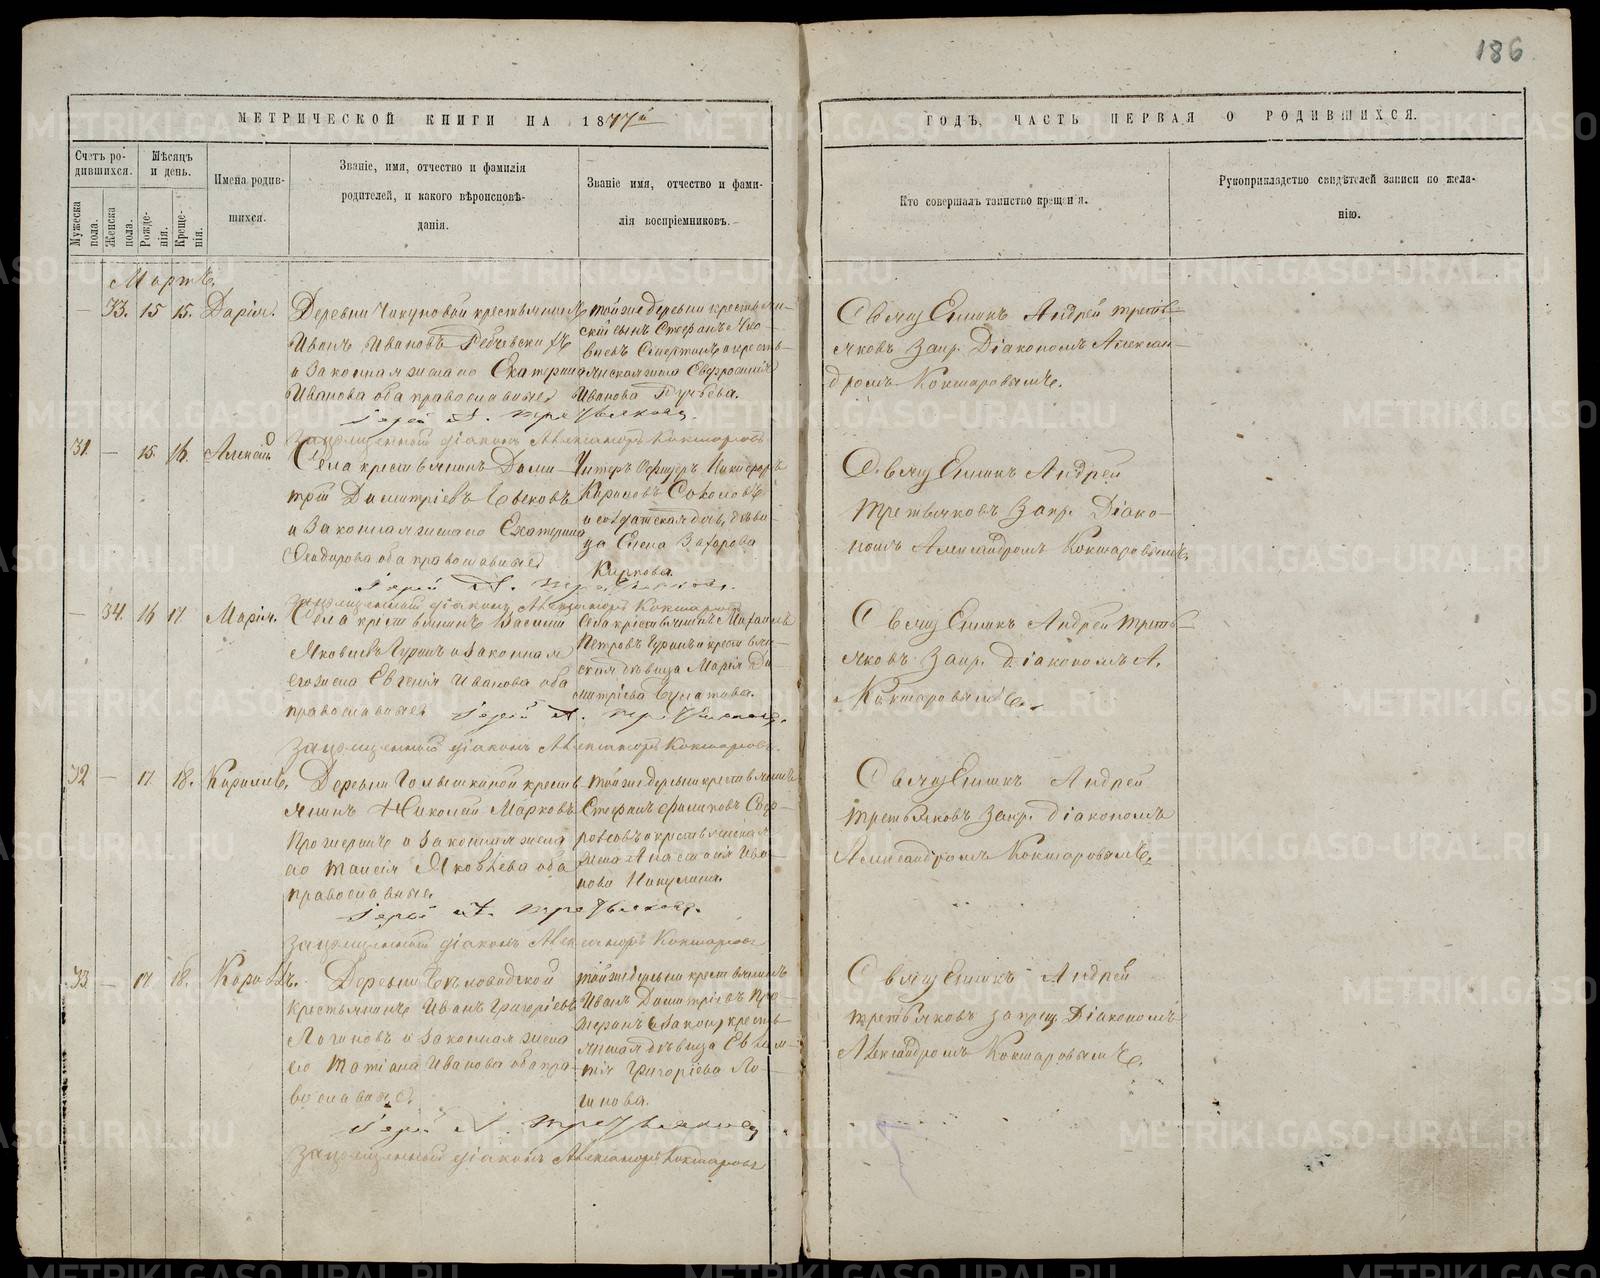 186
МЕТРИЧЕСКОЙ КНИГИ НА 1877й
ГОДЪ, ЧАСТЬ ПЕРВАЯ О РОДИВШИХСЯ.
Счетъ родившихся.
Мужеска пола.
Женска пола.
Мѣсяцъ и день.
Рожденія.
Крещенія.
Имена родившихся.
Званіе, имя, отчество и фамилія
родителей, и какого вѣроисповѣданія.
Званіе имя, отчество и фамилія воспріемниковъ.
Кто совершалъ таинство крещенія.
Рукоприкладство свидѣтелей записи по желанію.
Мартъ.
— 33. 15 15. Дарія.
Деревни крестьянинъ
Иванъ Ивановъ
и законная жена его Екатерина
Иванова оба православные
Іерей А. Третьяковъ.
Запрещенный діаконъ Александръ Кокшаровъ
той же деревни крестьянскій сынъ Стефанъ
Евфросинія
Иванова
Священникъ Андрей Третьяковъ запр. Діакономъ Александромъ Кокшаровымъ.
31. — 15. 16. Алексій
Села крестьянинъ Димитрій Димитріевъ
и законная жена его Екатерина
Ѳеодорова оба православные
Іерей А. Третьяковъ.
Запрещенный діаконъ Александръ Кокшаровъ
Унтеръ Офицеръ Никифоръ
Кириловъ Соколовъ
и солдатская дочь, дѣвица Елена Захарова
Карпова.
Священникъ Андрей
Третьяковъ запр. Діакономъ Александромъ Кокшаровымъ.
— 34. 16 17 Марія.
Села крестьянинъ Василій
Яковлевъ Гуринъ и законная
его жена Евгенія Иванова оба
православные Іерей А. Третьяковъ.
Запрещенный діаконъ Александръ Кокшаровъ.
Села крестьянинъ Михаилъ
Петровъ Гуринъ и крестьянская дѣвица Марія Димитріева Булатова.
Священникъ Андрей Третьяковъ запр. Діакономъ А.
Кокшаровымъ.
32 — 17. 18. Кирилъ.
Деревни крестьянинъ Николай Марковъ
и законная жена
его Таисія Яковлева оба
православные.
Іерей А. Третьяковъ.
Запрещенный діаконъ Александръ Кокшаровъ
той же деревни крестьянинъ
Стефанъ Филиповъ
и крестьянская
жена Анастасія Иванова Никулина.
Священникъ Андрей
Третьяковъ запр. Діакономъ
Александромъ Кокшаровымъ.
33 — 17 18. Кирилъ.
Деревни
крестьянинъ Иванъ Григорьевъ
Логиновъ и законная жена
его Татіана Иванова оба православные.
Іерей А. Третьяковъ
Запрещенный діаконъ Александръ Кокшаровъ
той же деревни крестьянинъ
Иванъ Димитріевъ
дѣвица Евлампія Григоріева Логинова.
Священникъ Андрей
Третьяковъ запрещ. Діакономъ
Александромъ Кокшаровымъ.
METRIKI.GASO-URAL.RU